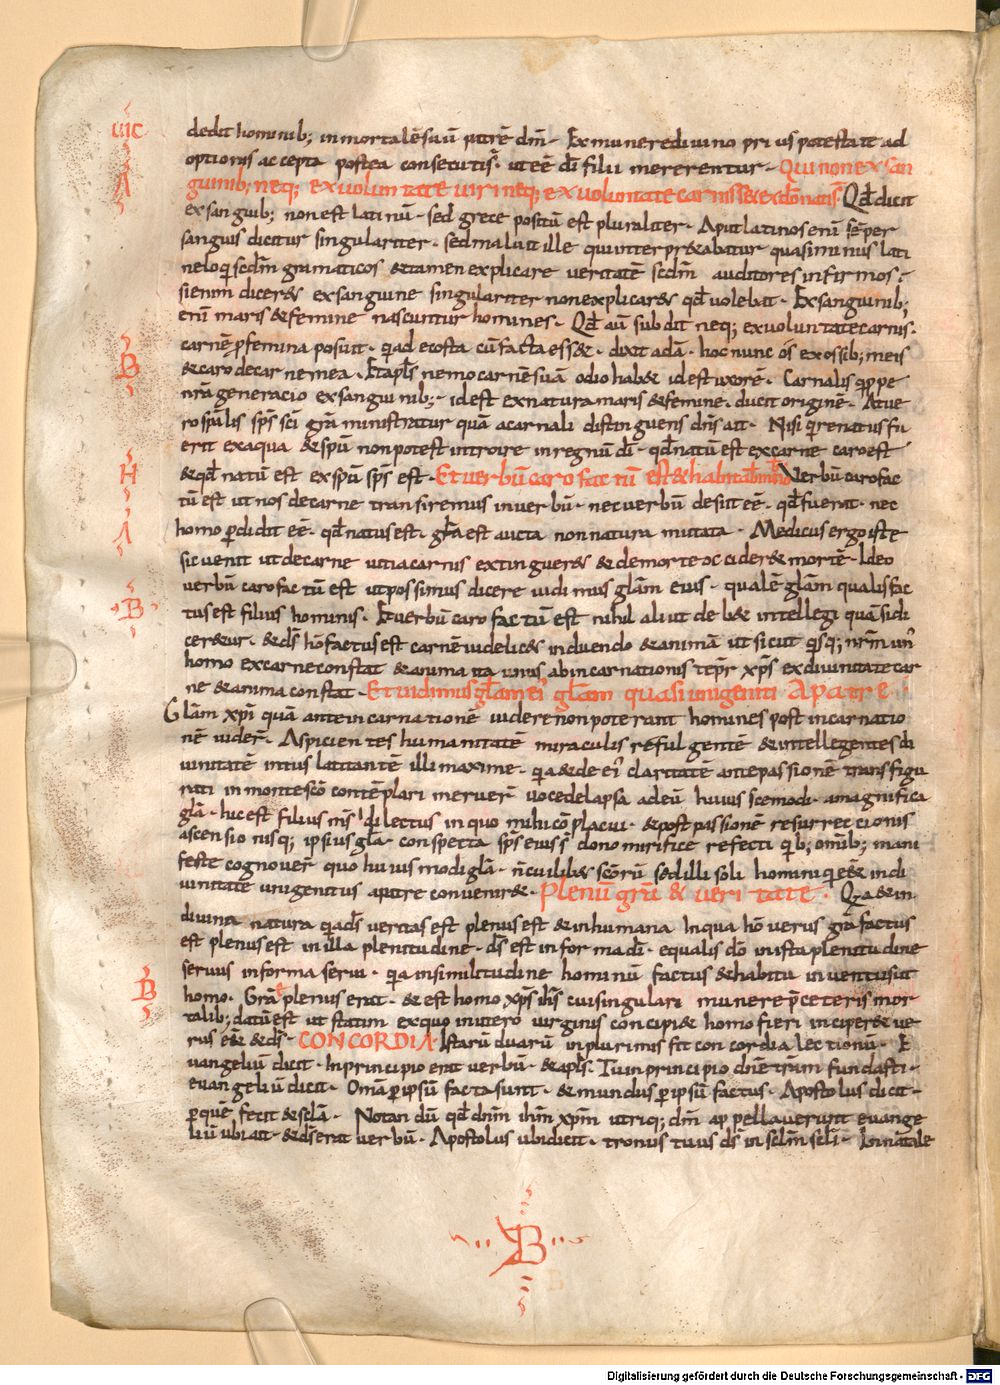 uic
dedit hominib; inmortalẽ suũ patrẽ dm̃· Ex munere diuino prius potestate ad
optionis accepta postea consecuti sᵗ· ut eẽ di filii mererentur· Qui non ex san
guinib; neq; ex uoluntate uiri neq; ex uoluntate carnis sed ex dõ nati sᵗ· Qđ dicit
A
ex sanguib; non est latinũ· sed grece positũ est pluraliter· Aput latinos enĩ sẽper
sanguis dicitur singulariter· sed maluit ille qui interpr&abatur quasi minus lati
ne loqui scđm gramaticos & tamen explicare ueritatẽ scđm auditores infirmos·
si enim dicer& ex sanguine singulariter non explicar& qđ uolebat· Ex sanguinib;
enĩ maris & femine nascuntur homines· Qđ aũ subdit neq; ex uoluntate carnis·
carnẽ p femina posuit· q̃ ad ecosta cũ facta ess&· dixit adã· hoc nunc os ex ossib; meis
B
& caro de carne mea· Et apłs nemo carnẽ suã odio hab& id est uxorẽ· Carnalis q̃ppe
nrã generacio ex sanguinib;· id est ex natura maris & femine· ducit originẽ· At ue
ro spãlis sp̃s sc̃i grã ministratur quã a carnali distinguens dñs ait· Nisi q̃ renatus fu
erit ex aqua & sp̃u non potest introire in regnũ di· qđ natũ est ex carne caro est
H
& qđ natũ est ex sp̃u sp̃s est· Et uerbũ caro factũ est & habitab in nob Verbũ caro fac
tũ est ut nos de carne transiremus in uerbũ· nec uerbũ desiit eẽ· qđ fuerat· nec
A
homo p̱didit eẽ· qđ natus est· gła est aucta non natura mutata· Medicus ergo iste
sic uenit ut de carne uitia carnis extinguer& & de morte occider& mortẽ· Ideo
uerbũ caro factũ est ut possimus dicere uidimus głam eius· qualẽ głam qualis fac
B
tus est filius hominis· Et uerbũ caro factũ est nihil aliut deb& intellegi quã si di
cer&ur· & ds hõ factus est carnẽ uidelic& induendo & animã ut sicut q̃sq; nrm̃ un'
homo ex carne constat & anima ita unus ab incarnationis tepr̃ xp̃s ex diuinitate car
ne & anima constat· Et uidimus głam ei' głam quasi unigeniti A patre
Głam xp̃i quã ante incarnationẽ uidere non poterant homines post incarnatio
nẽ uider̃· Aspicientes humanitatẽ miraculis refulgentẽ & intellegentes di
uinitatẽ intus latitantẽ illi maxime· q̃a & de ei' claritatẽ ante passionẽ transfigu
rati in monte sc̃o contẽplari meruer̃ uoce delapsa ad eũ huiuscemodi· a magnifica
głã· hic est filius m̃s dilectus in quo mihi cõplacui· & post passionẽ resurrecionis
ascensionisq; ipsius głã conspecta sp̃s eius s̃ dono mirifice refecti q̃b; om̃ib; mani
feste cognouer̃ quo huiusmodi głã n̄ cuilib& sc̃orũ sed illi soli homini que in di
uinitate unigenitus a patre conuenir&· Plenũ grã & ueritate· Q̃a & in
diuina natura q̃a ds ueritas est plenus est & in humana In qua hõ uerus grã factus
est plenus est in illa plenitudine· ds est in forma di· equalis dõ in ista plenitudine
B
seruus in forma serui· q̃a in similitudine hominũ factus & habitu inuentus ut
homo· Grã plenus erat· & est homo xp̃s ih̃s cui singulari munere p̃ceteris mor
talib; datũ est ut statim ex quo in utero uirginis concipi& homo fieri inciper& ue
rus eẽt & ds· CONCORDIA· Istarũ duarũ in plurimis fit concordia lectionũ· E
uangeliũ dicit· In principio erat uerbũ· & apłs· Tu in principio dñe terrã fundasti·
euangeliũ dicit· Om̃a p̱ ipsũ facta sunt· & mundus p̱ ipsũ factus· Apostolus dicit·
p̱ quẽ fecit & scła· Notandũ qđ dnm̃ ihm̃ xpm̃ utriq; dm̃ appellauerunt euange
liũ ubi ait· & ds erat uerbũ· Apostolus ubi dicit· tronus tuus ds in sclm̃ scli· In natale
B
Digitalisierung gefördert durch die Deutsche Forschungsgemeinschaft - DFG